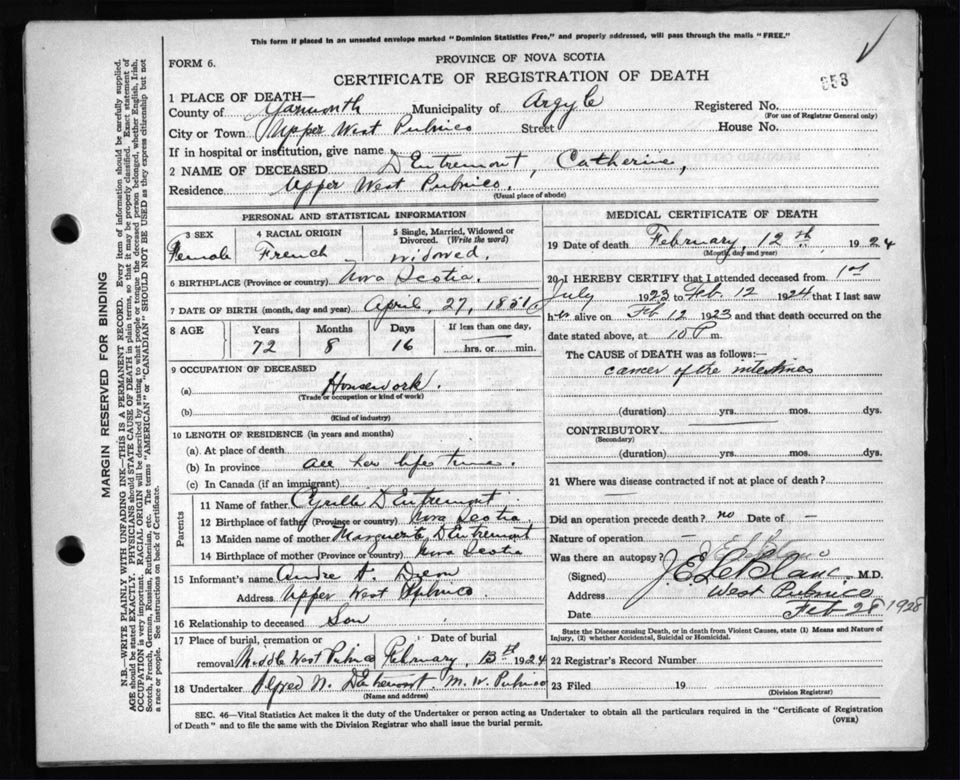 This form if placed in an unsealed envelope marked "Dominion Statistics Free," and properly addressed, will pass through the mails "FREE."
FORM 6.
PROVINCE OF NOVA SCOTIA
CERTIFICATE OF REGISTRATION OF DEATH
353
1 PLACE OF DEATH—
County of Yarmouth Municipality of Argyle Registered No.
(For use of Registrar General only)
City or Town Upper West Pubnico Street House No.
If in hospital or institution, give name
2 NAME OF DECEASED D'Entremont, Catherine,
Residence Upper West Pubnico.
(Usual place of abode)
PERSONAL AND STATISTICAL INFORMATION
3 SEX 4 RACIAL ORIGIN 5 Single, Married, Widowed or Divorced. (Write the word)
Female French widowed.
6 BIRTHPLACE (Province or country) Nova Scotia.
7 DATE OF BIRTH (month, day and year) April, 27, 1851
8 AGE Years Months Days If less than one day,
72 8 16 hrs. or min.
9 OCCUPATION OF DECEASED
(a) Housework.
(Trade or occupation or kind of work)
(b)
(Kind of industry)
10 LENGTH OF RESIDENCE (in years and months)
(a) At place of death
(b) In province all her life time.
(c) In Canada (if an immigrant)
Parents
11 Name of father Cyrille D'Entremont
12 Birthplace of father (Province or country) Nova Scotia
13 Maiden name of mother Marguerite D'Entremont
14 Birthplace of mother (Province or country) Nova Scotia
15 Informant's name Andre A.
Address Upper West Pubnico
16 Relationship to deceased Son
17 Place of burial, cremation or Date of burial
removal Middle West Pubnico February, 13th 1924
18 Undertaker Alfred N. D'Entremont. M. W. Pubnico
(Name and address)
MEDICAL CERTIFICATE OF DEATH
19 Date of death February, 12th, 1924
(Month, day and year)
20 I HEREBY CERTIFY that I attended deceased from 1st
July 1923 to Feb. 12 1924 that I last saw
her alive on Feb 12 1923 and that death occurred on the
date stated above, at 10 P m.
The CAUSE of DEATH was as follows:—
cancer of the intestines
(duration) yrs. mos. dys.
CONTRIBUTORY.
(Secondary)
(duration) yrs. mos. dys.
21 Where was disease contracted if not at place of death?
Did an operation precede death? no Date of —
Nature of operation —
Was there an autopsy?
(Signed) J. E. LeBlanc. M.D.
Address West Pubnico
Date Feb 28 1928
State the Disease causing Death, or in death from Violent Causes, state (1) Means and Nature of
Injury, (2) whether Accidental, Suicidal or Homicidal.
22 Registrar's Record Number
23 Filed 19
(Division Registrar)
SEC. 46—Vital Statistics Act makes it the duty of the Undertaker or person acting as Undertaker to obtain all the particulars required in the "Certificate of Registration
of Death" and to file the same with the Division Registrar who shall issue the burial permit.
(OVER)
MARGIN RESERVED FOR BINDING
N.B.—WRITE PLAINLY WITH UNFADING INK—THIS IS A PERMANENT RECORD. Every item of information should be carefully supplied.
AGE should be stated EXACTLY. PHYSICIANS should STATE CAUSE OF DEATH in plain terms, so that it may be properly classified. Exact statement of
OCCUPATION is very important. RACIAL ORIGIN will be described by stating to what people or tongue the deceased person belonged, whether English, Irish,
Scotch, French, German, Russian, Ruthenian, etc. The terms "AMERICAN" or "CANADIAN" SHOULD NOT BE USED as they express citizenship but not
a race or people. See instructions on back of Certificate.